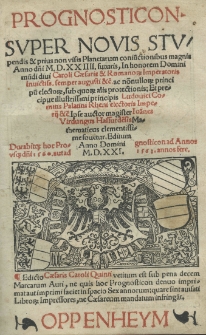 PROGNOSTICON
SVPER NOVIS STV-
pendis & prius non visis Planetarum coniunctionibus magnis
Anno dñi M.D.XXIIII. futuris, In honorem Domini
Caroli Cæsaris & Romanor. Imperatoris
inuictiss. semper augusti &c ac nõnullorum princi
electorũ, sub
illustrissimi principis Ludouici Co-
mitis Palatini Rheni electoris Impe
rij &c Ipse auctor magister Ioãnes
Virdungus Hassfurdẽsis Ma-
thematicus clementissi-
me fouitur. Editum
Anno Domini
M.D.XXI.
Durabit hoc Pro
gnosticon ad Annos
annos fere.
Edicto Cæsaris Caroli Quinti vetitum est sub pena decem
Marcarum Auri, ne quis hoc Prognosticon denuo impri
mat aut imprimi faciat in spacio Sex annorum
Libros Impressores, ne Cæsareum mandatum infringãt.
OPPENHEYM